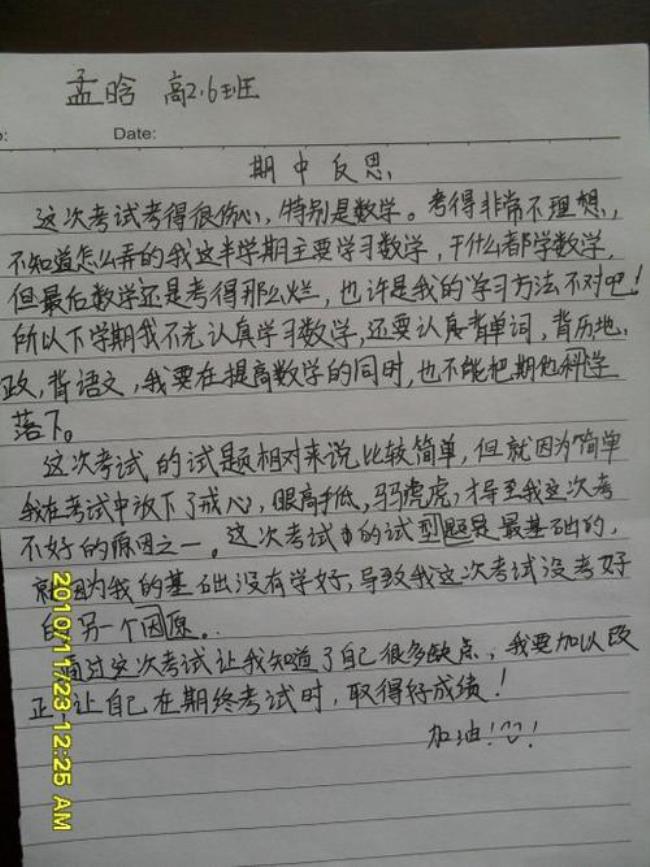 孟晗 高2.6班
Date:
期中反思
这次考试考得很伤心,特别是数学。考得非常不理想,
不知道怎么弄的我这半学期主要学习数学,干什么都学数学,
但最后数学还是考得那么烂,也许是我的学习方法不对吧!
所以下学期我不光认真学习数学,还要认真背单词,背历地、
政,背语文,我要在提高数学的同时,也不能把期他科学
落下。
这次考试的试题相对来说比较简单,但就因为简单
我在考试中放下了戒心,眼高手低,马虎虎,才导至我这次考
不好的原因之一。这次考试中的试型题是最基础的,
就因为我的基础没有学好,导致我这次考试没考好
的另一个因愿。
通过这次考试让我知道了自己很多缺点,我要加以改
正 让自己在期终考试时,取得好成绩!
加油!!
2010/11/23 12:25 AM